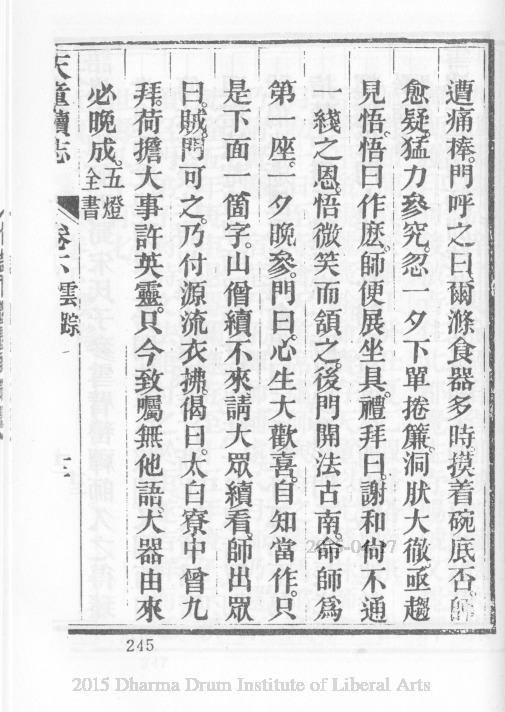 遭痛棒。門呼之曰。爾滌食器多時。摸着碗底否。師
愈疑。猛力參究。忽一夕下單捲簾。洞肰大徹。亟趨
見悟。悟曰作麽。師便展坐具。禮拜曰。謝和尙不通
一綫之恩。悟微笑而頷之。後門開法古南。命師爲
第一座。一夕晚參。門曰。心生大歡喜。自知當作。只
是下面一箇字。山僧續不來。請大眾續看。師出眾
曰。賊。門可之。乃付源流衣拂。偈曰。太白寮中曾九
拜。荷擔大事許英靈。只今致囑無他語。大器由來
必晚成。五燈全書
天童續志
卷下 雲踪
十二
245
2015 Dharma Drum Institute of Liberal Arts